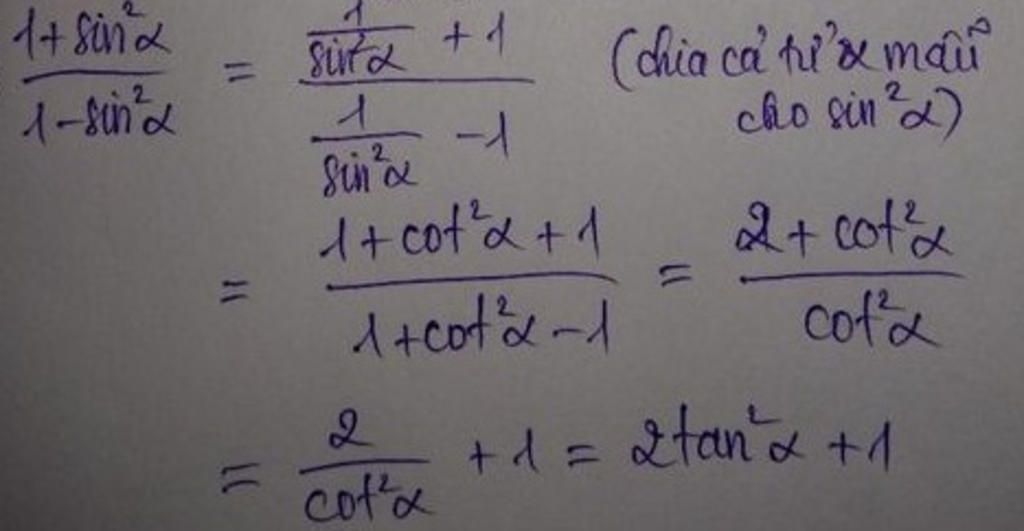 (1 + sin²α)/(1 - sin²α) = (1/sin²α + 1)/(1/sin²α - 1) (chia cả tử & mẫu
cho sin²α)
= (1 + cot²α + 1)/(1 + cot²α - 1) = (2 + cot²α)/(cot²α)
= 2/cot²α + 1 = 2tan²α + 1